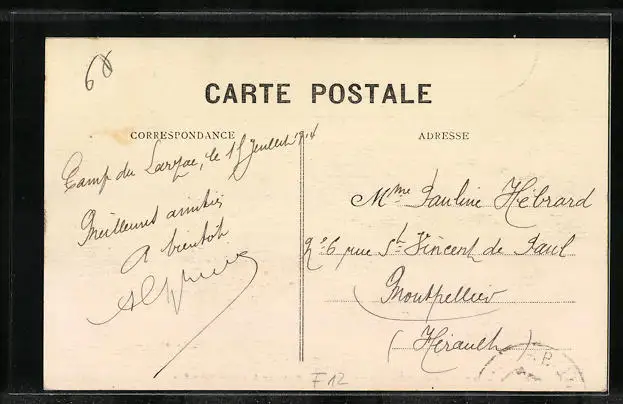 68
CARTE POSTALE
CORRESPONDANCE
ADRESSE
Camp du Larzac, le 15 Juillet 1914
Meilleures amitiés
A bientôt
Mme Pauline Hébrard
26 rue St Vincent de Paul
Montpellier
(Hérault)
F12